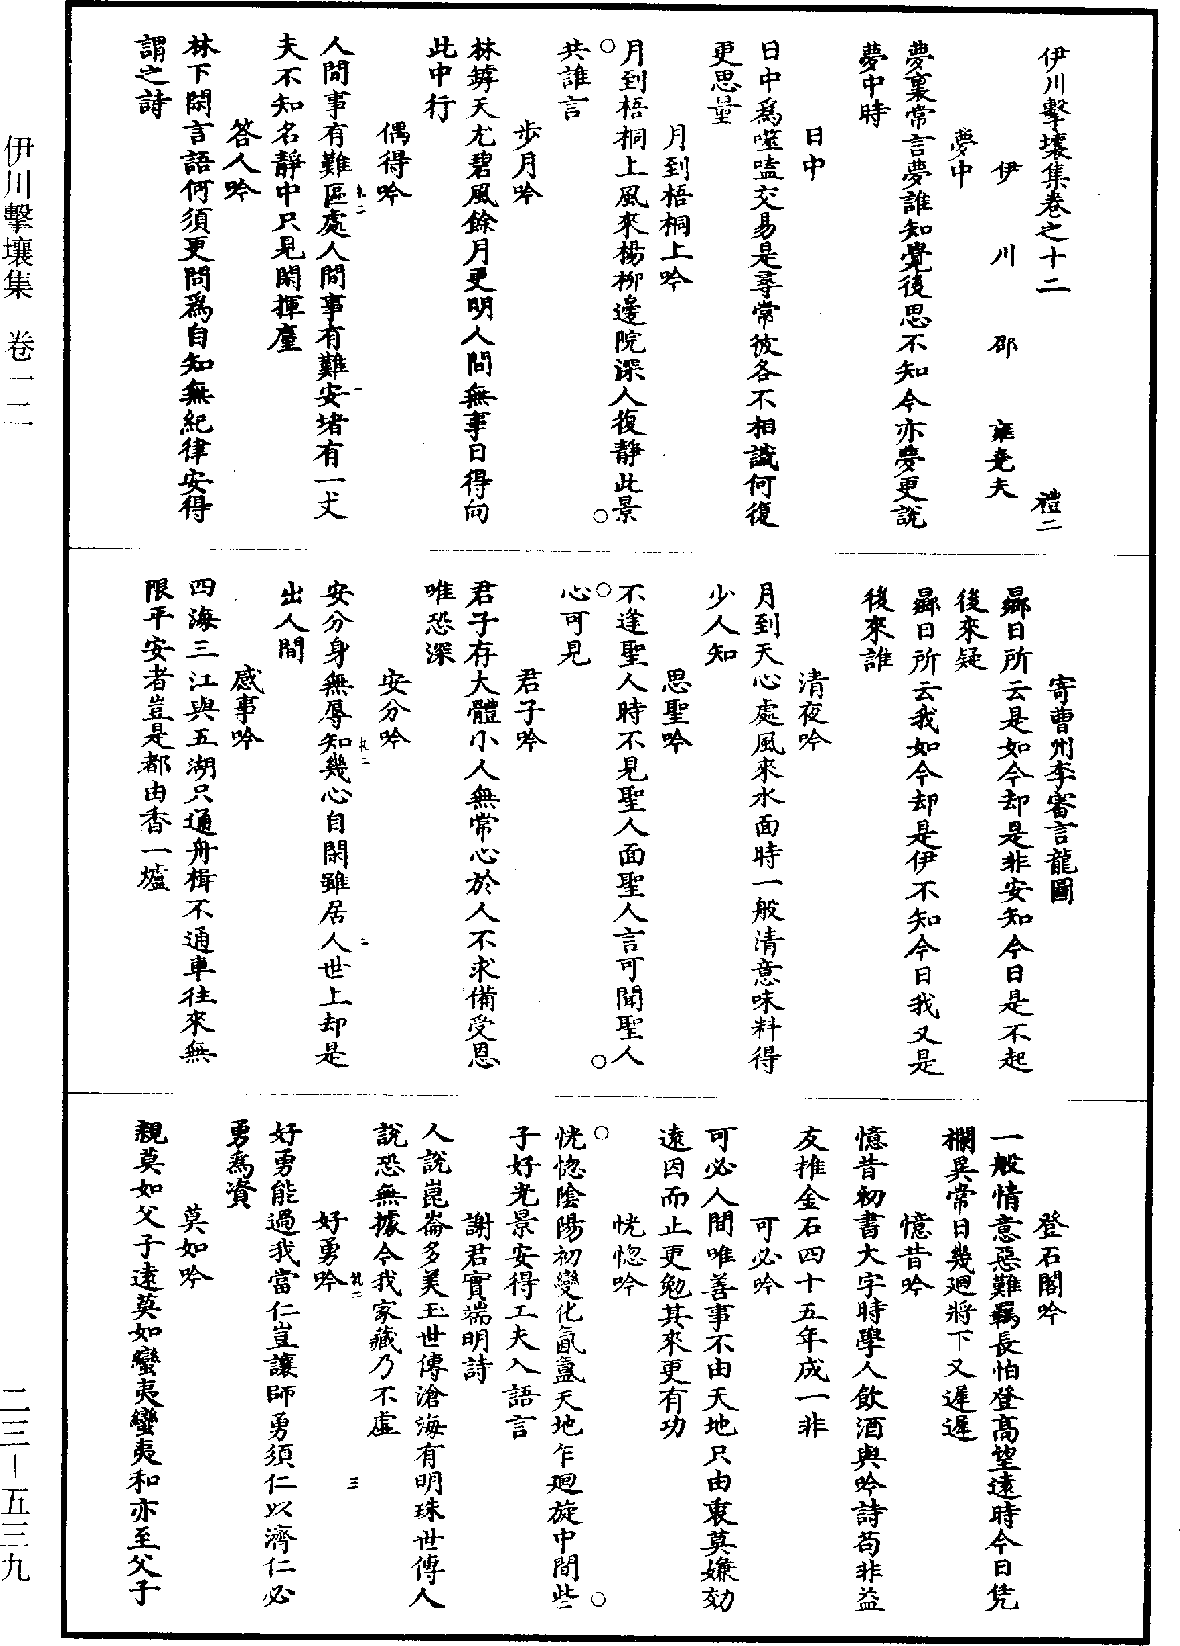 伊川擊壤集卷之十二　禮二
伊川邵雍堯夫
夢中
夢裏常言夢誰知覺後思不知今亦夢更說
夢中時
日中
日中爲噬嗑交易是尋常彼各不相識何復
更思量
月到梧桐上吟
月到梧桐上風來楊柳邊院深人復靜此景
共誰言
步月吟
林罅天尤碧風餘月更明人間無事日得向
此中行
偶得吟
人間事有難區處人間事有難安堵有一丈
夫不知名靜中只見閑揮麈
答人吟
林下閑言語何須更問爲自知無紀律安得
謂之詩
寄曹州李審言龍圖
曏日所云是如今却是非安知今日是不起
後來疑
曏日所云我如今却是伊不知今日我又是
後來誰
清夜吟
月到天心處風來水面時一般清意味料得
少人知
思聖吟
不逢聖人時不見聖人面聖人言可聞聖人
心可見
君子吟
君子存大體小人無常心於人不求備受恩
唯恐深
安分吟
安分身無辱知幾心自閑雖居人世上却是
出人間
感事吟
四海三江與五湖只通舟楫不通車往來無
限平安者豈是都由香一爐
登石閣吟
一般情意惡難羈長怕登高望遠時今日凭
欄異常日幾廻將下又遲遲
憶昔吟
憶昔初書大字時學人飲酒與吟詩苟非益
友推金石四十五年成一非
可必吟
可必人間唯善事不由天地只由衷莫嫌効
遠因而止更勉其來更有功
恍惚吟
恍惚陰陽初變化氤氳天地乍廻旋中間些
子好光景安得工夫入語言
謝君實端明詩
人說崑崙多美玉世傳滄海有明珠世傳人
說恐無據今我家藏乃不虛
好勇吟
好勇能過我當仁豈讓師勇須仁以濟仁必
勇爲資
莫如吟
親莫如父子遠莫如蠻夷蠻夷和亦至父子
伊川擊壤集　卷一二
二三—五三九